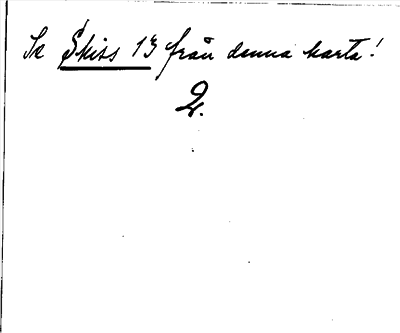 Se Skiss 13 från denna karta!
2.